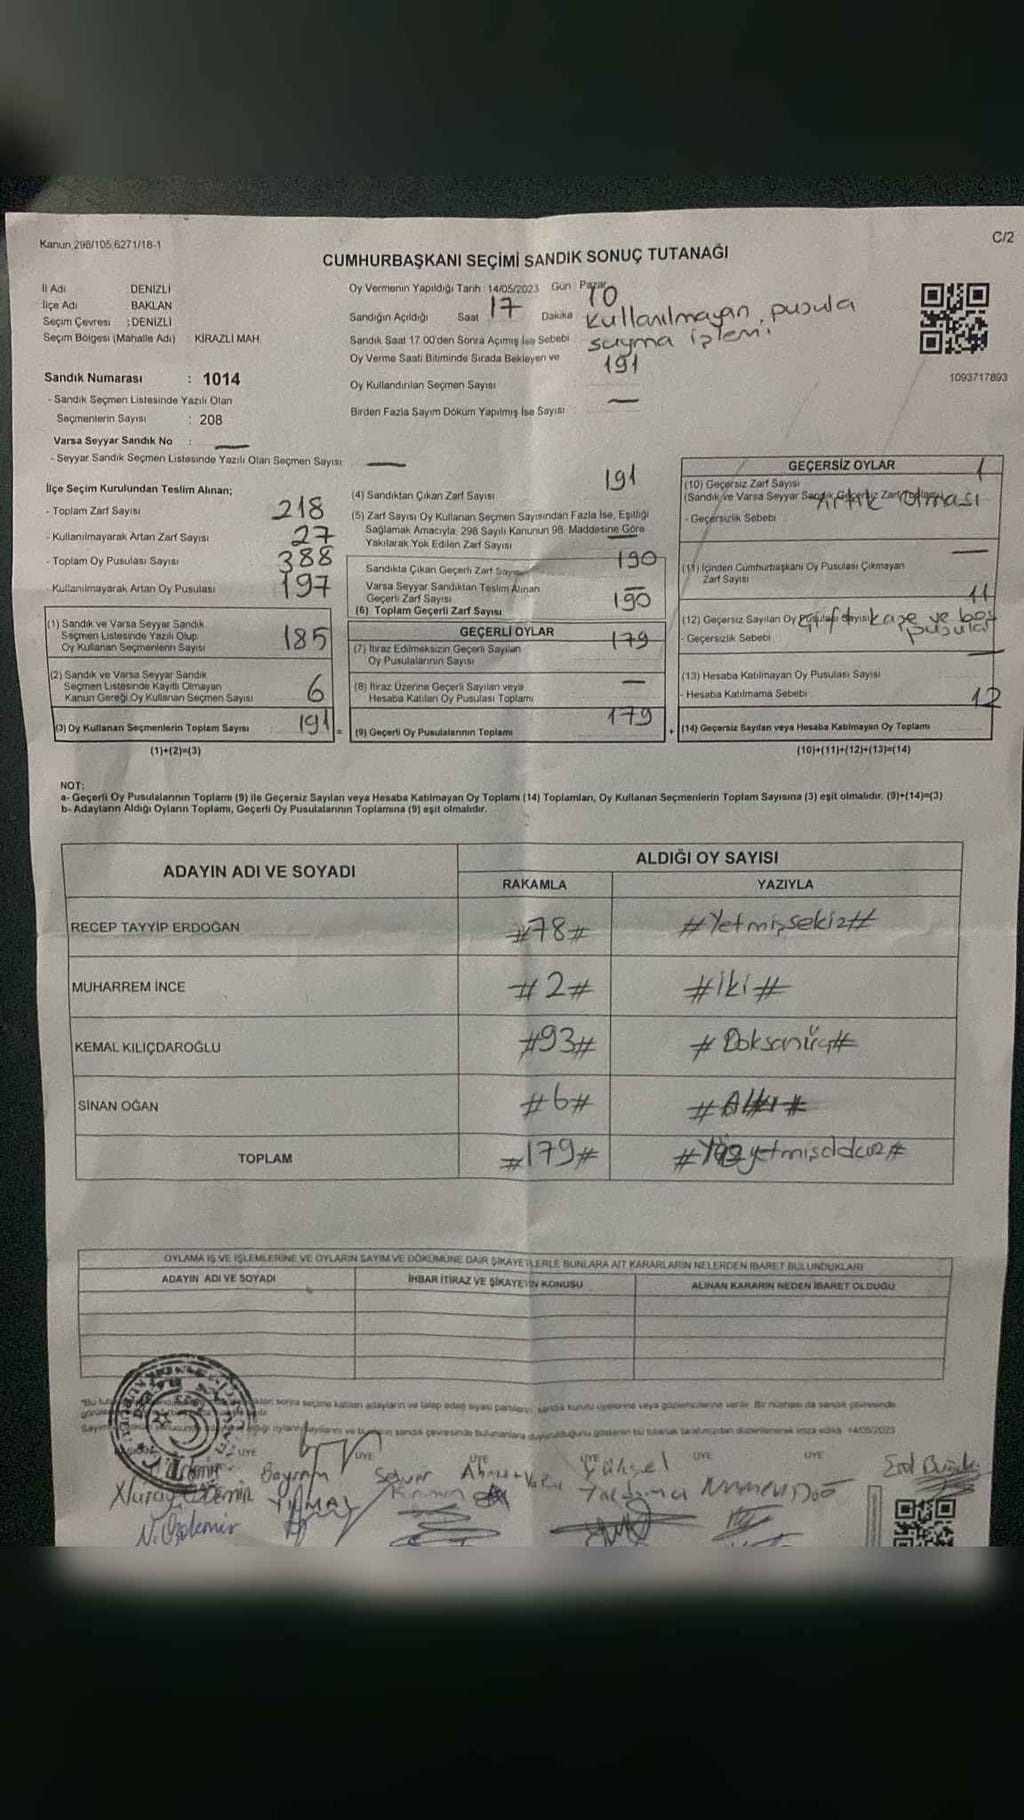 Kanun,298/105,6271/18-1
C/2
CUMHURBAŞKANI SEÇİMİ SANDIK SONUÇ TUTANAĞI
İl Adı DENİZLİ
İlçe Adı BAKLAN
Seçim Çevresi : DENİZLİ
Seçim Bölgesi (Mahalle Adı) : KİRAZLI MAH
Sandık Numarası : 1014
- Sandık Seçmen Listesinde Yazılı Olan
Seçmenlerin Sayısı : 208
Varsa Seyyar Sandık No : —
- Seyyar Sandık Seçmen Listesinde Yazılı Olan Seçmen Sayısı: —
Oy Vermenin Yapıldığı Tarih : 14/05/2023 Gün : Pazar
Sandığın Açıldığı Saat 17 Dakika 10
Sandık Saat 17.00'den Sonra Açımış İse Sebebi kullanılmayan pusula
sayma işlemi
Oy Verme Saati Bitiminde Sırada Bekleyen ve
Oy Kullandırılan Seçmen Sayısı 191
Birden Fazla Sayım Döküm Yapılmış İse Sayısı —
1093717893
İlçe Seçim Kurulundan Teslim Alınan;
- Toplam Zarf Sayısı 218
- Kullanılmayarak Artan Zarf Sayısı 27
- Toplam Oy Pusulası Sayısı 388
- Kullanılmayarak Artan Oy Pusulası 197
(1) Sandık ve Varsa Seyyar Sandık
Seçmen Listesinde Yazılı Olup
Oy Kullanan Seçmenlerin Sayısı 185
(2) Sandık ve Varsa Seyyar Sandık
Seçmen Listesinde Kayıtlı Olmayan
Kanun Gereği Oy Kullanan Seçmen Sayısı 6
(3) Oy Kullanan Seçmenlerin Toplam Sayısı 191 =
(1)+(2)=(3)
(4) Sandıktan Çıkan Zarf Sayısı 191
(5) Zarf Sayısı Oy Kullanan Seçmen Sayısından Fazla İse, Eşitliği
Sağlamak Amacıyla, 298 Sayılı Kanunun 98. Maddesine Göre
Yakılarak Yok Edilen Zarf Sayısı —
Sandıkta Çıkan Geçerli Zarf Sayısı 190
Varsa Seyyar Sandıktan Teslim Alınan
Geçerli Zarf Sayısı —
(6) Toplam Geçerli Zarf Sayısı 190
GEÇERLİ OYLAR
(7) İtiraz Edilmeksizin Geçerli Sayılan
Oy Pusulalarının Sayısı 179
(8) İtiraz Üzerine Geçerli Sayılan veya
Hesaba Katılan Oy Pusulası Toplamı —
(9) Geçerli Oy Pusulalarının Toplamı 179 +
GEÇERSİZ OYLAR
(10) Geçersiz Zarf Sayısı 1
(Sandık ve Varsa Seyyar Sandık Geçersiz Zarf Toplamı)
- Geçersizlik Sebebi : olması
(11) İçinden Cumhurbaşkanı Oy Pusulası Çıkmayan
Zarf Sayısı —
(12) Geçersiz Sayılan Oy Pusulası Sayısı 11
- Geçersizlik Sebebi : kaşe ve boş
pusula
(13) Hesaba Katılmayan Oy Pusulası Sayısı —
- Hesaba Katılmama Sebebi :
(14) Geçersiz Sayılan veya Hesaba Katılmayan Oy Toplamı 12
(10)+(11)+(12)+(13)=(14)
NOT:
a- Geçerli Oy Pusulalarının Toplamı (9) ile Geçersiz Sayılan veya Hesaba Katılmayan Oy Toplamı (14) Toplamları, Oy Kullanan Seçmenlerin Toplam Sayısına (3) eşit olmalıdır. (9)+(14)=(3)
b- Adayların Aldığı Oyların Toplamı, Geçerli Oy Pusulalarının Toplamına (9) eşit olmalıdır.
ADAYIN ADI VE SOYADI ALDIĞI OY SAYISI
RAKAMLA YAZIYLA
RECEP TAYYİP ERDOĞAN #78# #Yetmişsekiz#
MUHARREM İNCE #2# #iki#
KEMAL KILIÇDAROĞLU #93# #Doksanüç#
SİNAN OĞAN #6# #Altı#
TOPLAM #179# #Yüzyetmişdokuz#
OYLAMA İŞ VE İŞLEMLERİNE VE OYLARIN SAYIM VE DÖKÜMÜNE DAİR ŞİKAYETLERLE BUNLARA AİT KARARLARIN NELERDEN İBARET BULUNDUKLARI
ADAYIN ADI VE SOYADI İHBAR İTİRAZ VE ŞİKAYETİN KONUSU ALINAN KARARIN NEDEN İBARET OLDUĞU
sonra seçime katılan adayların ve talep eden siyasi partilerin sandık kurulu üyelerine veya gözlemcilerine verilir. Bir nüshası da sandık çevresinde
14/05/2023
ÜYE ÜYE ÜYE ÜYE ÜYE ÜYE
Bayram Yüksel
YILMAZ
N. Özdemir